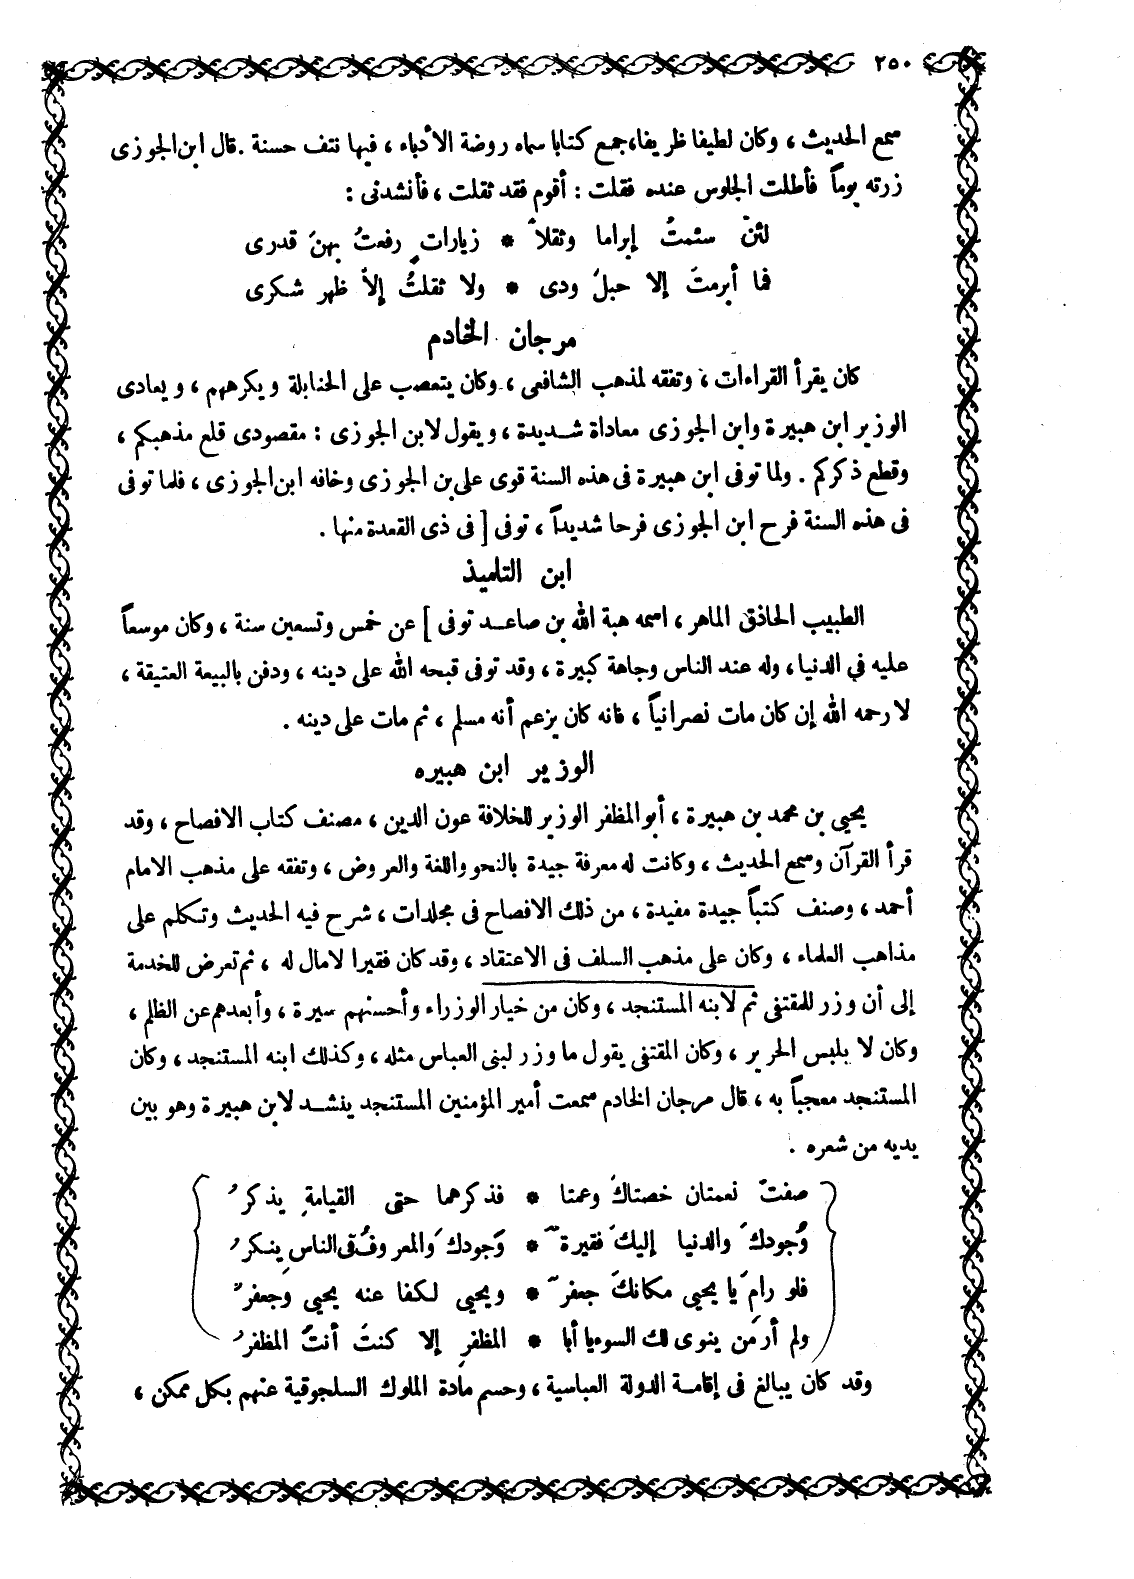 ٢٥٠
سمع الحديث ، وكان لطيفا ظريفا، جمع كتابا سماه روضة الأدباء ، فيها نتف حسنة . قال ابن الجوزى
زرته يوماً فأطلت الجلوس عنده فقلت : أقوم فقد ثقلت ، فأنشدنى :
لئن سئمتُ إبراما وثقلاً * زيارات رفعتُ بهنَ قدرى
فما أبرمتَ إلا حبلَ ودى * ولا ثقلتُ إلاَ ظهر شكرى
مرجان الخادم
كان يقرأ القراءات ، وتفقه لمذهب الشافعى ، وكان يتعصب على الحنابلة ويكرههم ، ويعادى
الوزير ابن هبيرة وابن الجوزى معاداة شديدة ، ويقول لابن الجوزى : مقصودى قلع مذهبكم ،
وقطع ذكركم . ولما توفى ابن هبيرة فى هذه السنة قوى على بن الجوزى وخافه ابن الجوزى ، فلما توفى
فى هذه السنة فرح ابن الجوزى فرحا شديداً ، توفى [ فى ذى القعدة منها .
ابن التلميذ
الطبيب الحاذق الماهر ، اسمه هبة الله بن صاعد توفى ] عن خمس وتسعين سنة ، وكان موسعاً
عليه في الدنيا ، وله عند الناس وجاهة كبيرة ، وقد توفى قبحه الله على دينه ، ودفن بالبيعة العتيقة ،
لا رحمه الله إن كان مات نصرانياً ، فانه كان يزعم أنه مسلم ، ثم مات على دينه .
الوزير ابن هبيره
يحيى بن محمد بن هبيرة ، أبو المظفر الوزير للخلافة عون الدين ، مصنف كتاب الافصاح ، وقد
قرأ القرآن وسمع الحديث ، وكانت له معرفة جيدة بالنحو واللغة والعروض ، وتفقه على مذهب الامام
أحمد ، وصنف كتباً جيدة مفيدة ، من ذلك الافصاح فى مجلدات ، شرح فيه الحديث وتكلم على
مذاهب العلماء ، وكان على مذهب السلف فى الاعتقاد ، وقد كان فقيرا لا مال له ، ثم تعرض للخدمة
إلى أن وزر للمقتفى ثم لابنه المستنجد ، وكان من خيار الوزراء وأحسنهم سيرة ، وأبعدهم عن الظلم ،
وكان لا يلبس الحرير ، وكان المقتفى يقول ما وزر لبنى العباس مثله ، وكذلك ابنه المستنجد ، وكان
المستنجد معجباً به ، قال مرجان الخادم سمعت أمير المؤمنين المستنجد ينشد لابن هبيرة وهو بين
يديه من شعره .
صفتَ نعمتان خصتاكَ وعمتا * فذكرهما حتى القيامةِ يذكرُ
وُجودكَ والدنيا إليكَ فقيرةٌ * وَجودكَ والمعروفُ فى الناسِ ينكرُ
فلو رامَ يا يحيى مكانكَ جعفرٌ * ويحيى لكفا عنه يحيى وجعفرُ
ولم أر مَن ينوى لك السوء يا أبا * المظفرِ إلا كنتَ أنتَ المظفرُ
وقد كان يبالغ فى إقامة الدولة العباسية ، وحسم مادة الملوك السلجوقية عنهم بكل ممكن ،